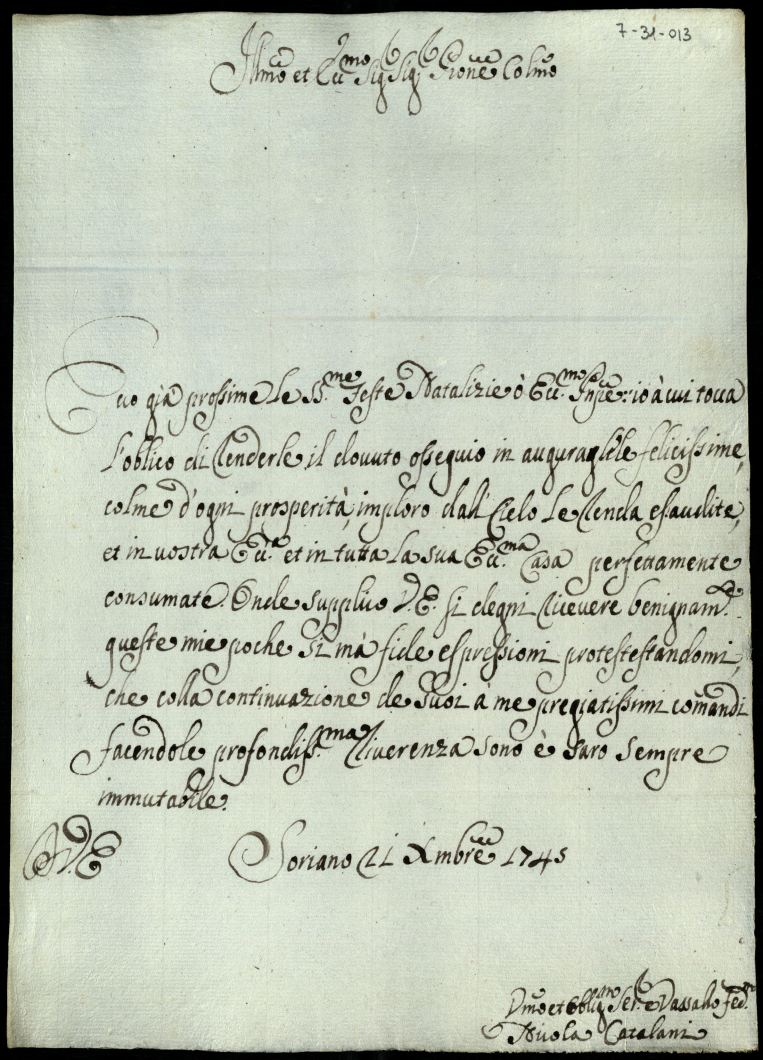 7-31-013
Ill.mo et Ecc.mo Sig. Sig. P.rone Col.mo
già prossime le SS.me Feste Natalizie ò Ecc.mo io à cui tocca
l'obligo di renderle il dovuto ossequio in auguragliele felicissime,
colme d'ogni prosperità, imploro dall'Cielo le renda esaudite,
et in vostra Ecc.a et in tutta la sua Ecc.ma Casa perfettamente
consumate. Onde supplico V.E. si degni ricevere benignam.te
queste mie poche si mà fide espressioni protestestandomi,
che colla continuazione de Suoi à me pregiatissimi comandi
facendole profondiss.ma riverenza sono è saro sempre
immutabile.
D. V.E.
Soriano 21 Xmbre 1745
D.mo et Obblig.mo Ser.e e Vassallo fed.mo
Nicola Catalani